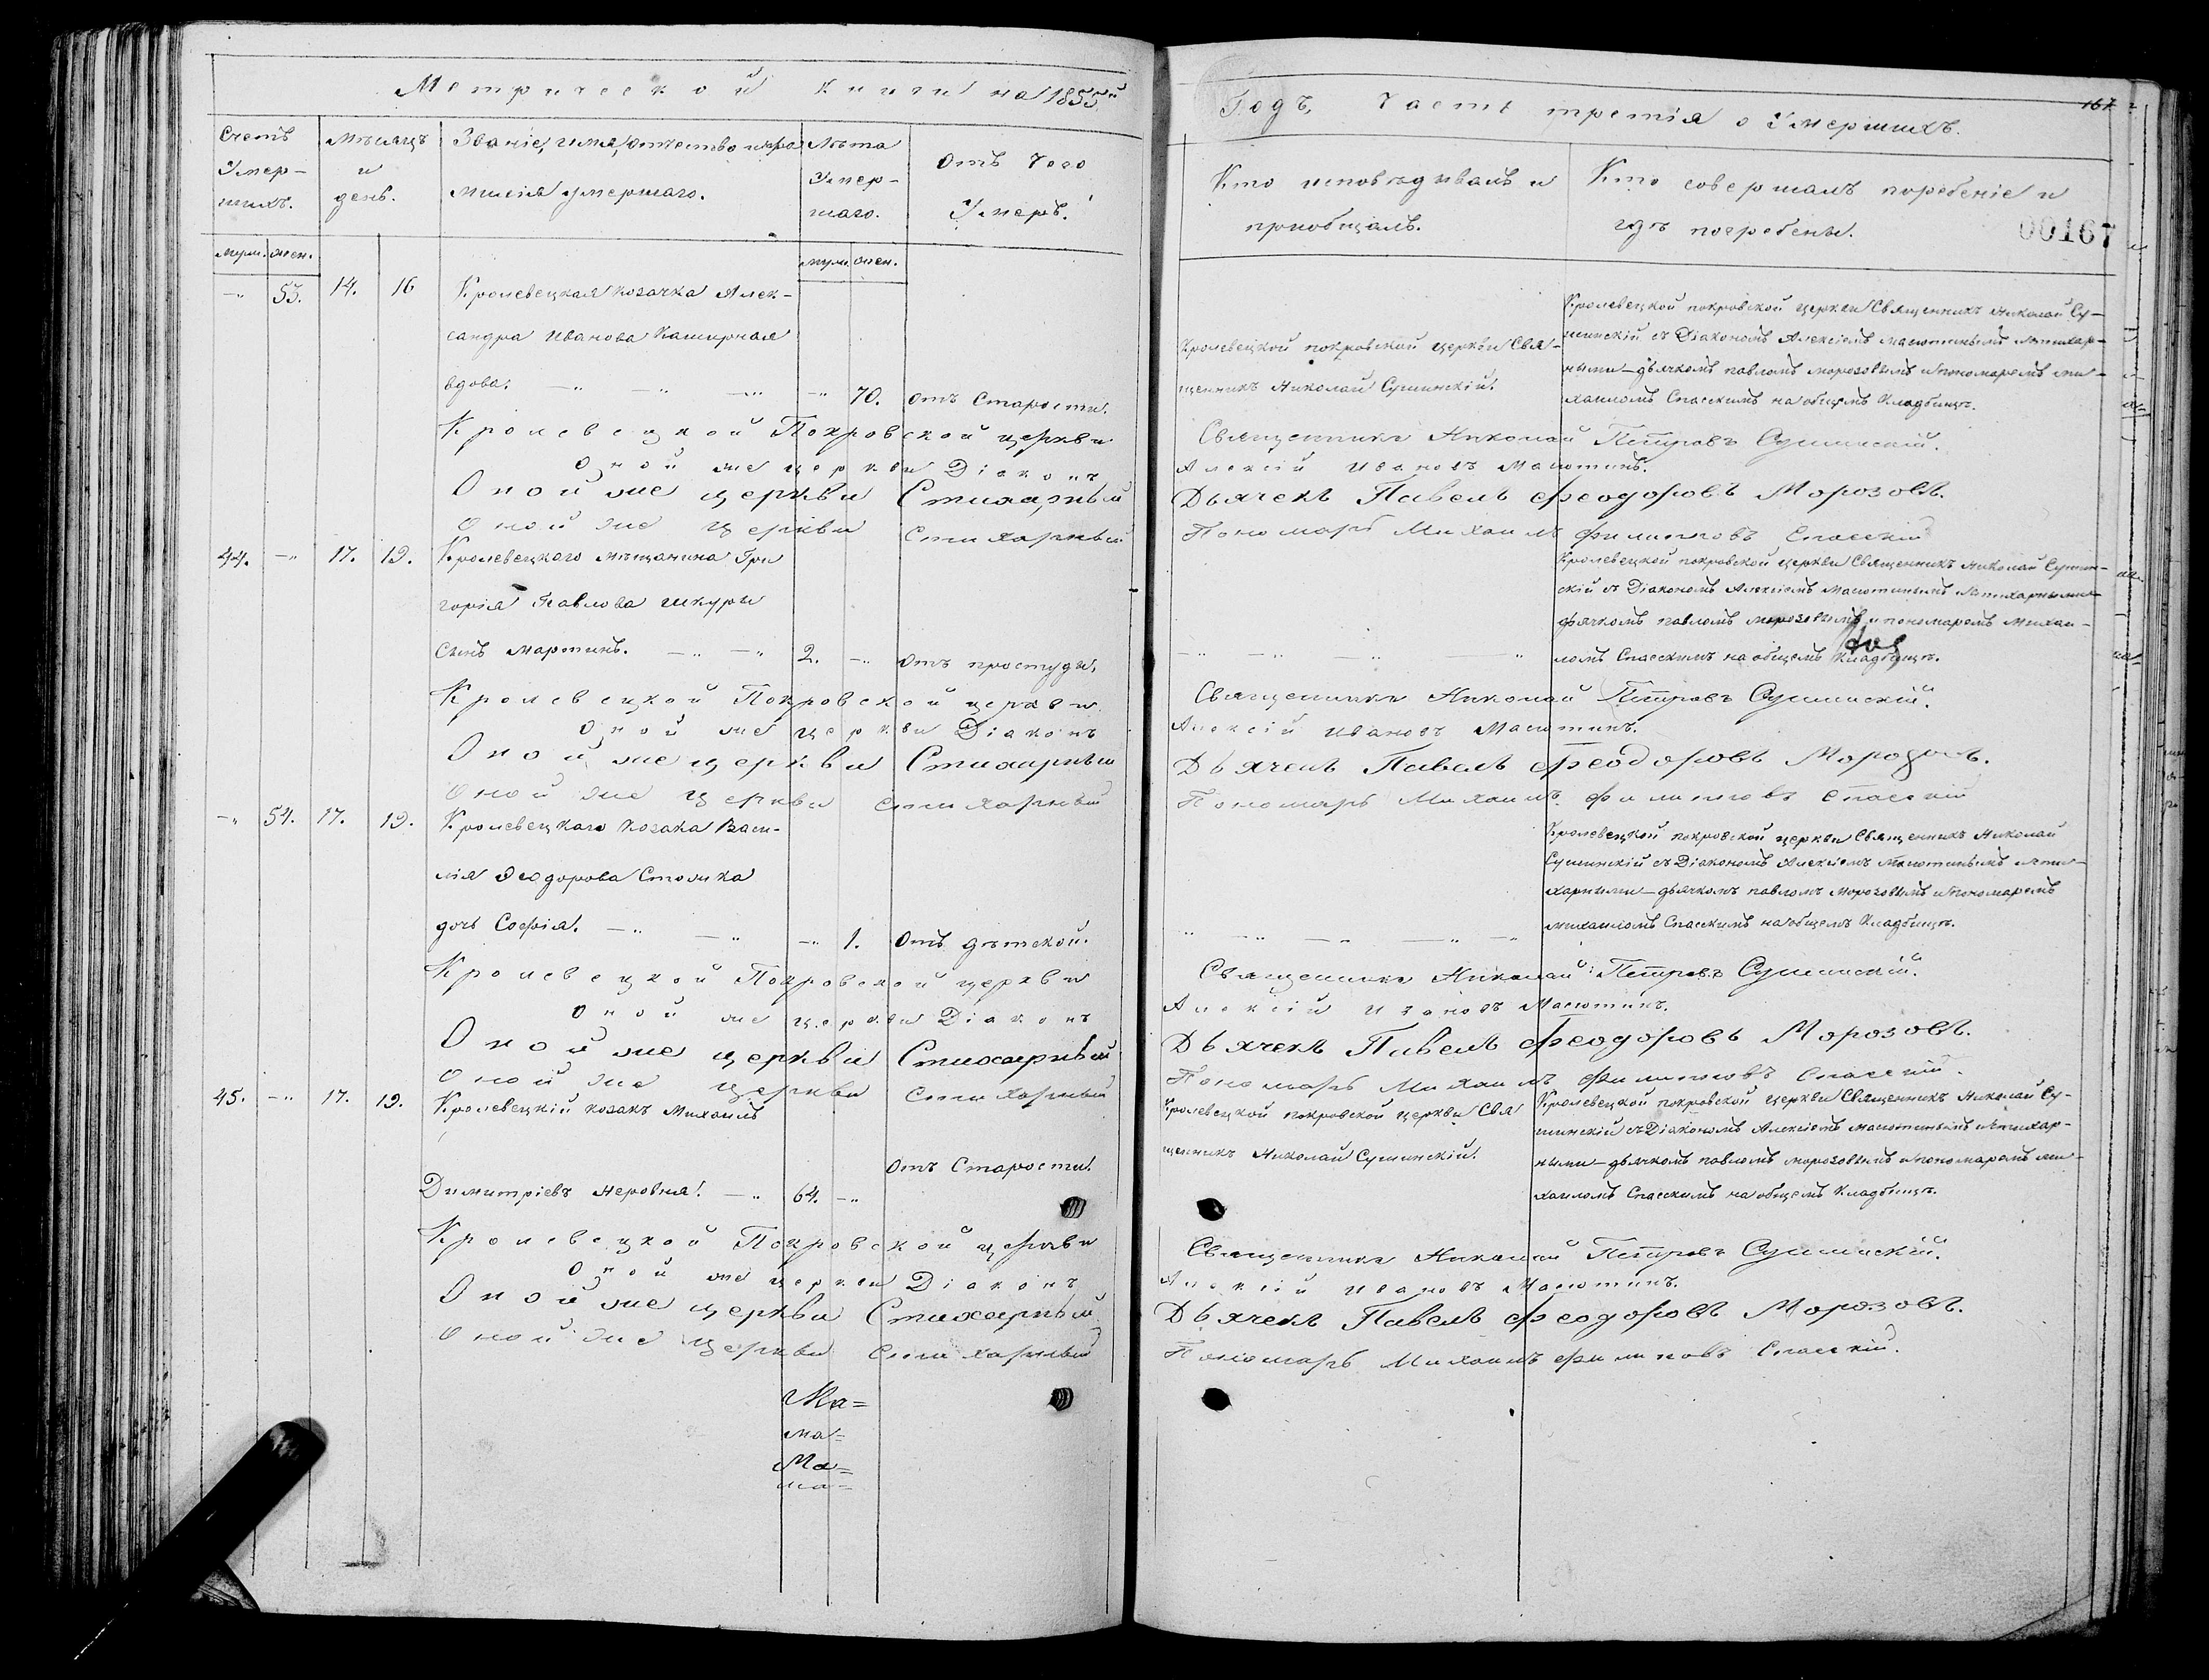 Метрической книги на 1855й
Счетъ Умер-шихъ.
Мѣсяцъ и день.
Званіе, имя, отчество и фа-
милія умершаго.
Лѣта Умер-шаго.
Отъ чего Умеръ.
муж. жен.
муж. жен.
-„ 53. 14. 16
Кролевецкая козачка Алек-
сандра Иванова Каширная
вдова. -„ -„ -„ -„ 70. отъ Старости.
Кролевецкой Покровской церкви
Оной же церкви Діаконъ
Оной же церкви Стихарный
Оной же церкви Стихарный
44. -„ 17. 19. Кролевецкого мѣщанина Гри
горія Павлова Шкуры
сынъ Мартинъ. -„ -„ 2. -„ отъ простуды.
Кролевецкой Покровской церкви
Оной же церкви Діаконъ
Оной же церкви Стихарный
Оной же церкви стихарный
-„ 54. 17. 19. Кролевецкаго козака Васи-
лія Ѳеодорова Столика
дочь Софія. -„ -„ -„ 1. отъ дѣтской.
Кролевецкой Покровской церкви
Оной же церкви Діаконъ
Оной же церкви Стихарный
Оной же церкви стихарный
45. -„ 17. 19. Кролевецкій козакъ Михаилъ
отъ Старости.
Димитріевъ Неровня. -„ 64. -„
Кролевецкой Покровской церкви
Оной же церкви Діаконъ
Оной же церкви Стихарный
Оной же церкви стихарный
Ма=
ма=
Ма=
ма=
Годъ, Часть третія о Умершихъ.
167
Кто исповѣдывалъ и
пріобщалъ.
Кто совершалъ погребеніе и
гдѣ погребены.
00167
Кролевецкой покровской церкви Свя-
щенникъ Николай Сушинскій.
Кролевецкой покровской церкви Священникъ Николай Су-
шинскій съ Діакономъ Алексіемъ Масютинымъ и стихар-
ными - дьячкомъ павломъ морозовымъ и пономаремъ ми-
хаиломъ Спасскимъ на общемъ Кладбищѣ.
Священникъ Николай Петровъ Сушинскій.
Алексій Ивановъ Масютинъ.
Дьячекъ Павелъ Феодоровъ Морозовъ.
Пономарь Михаилъ Филиповъ Спасскій
Кролевецкой покровской церкви Священникъ Николай Сушин-
скій съ Діакономъ Алексіемъ Масютинымъ и стихарными
дьячкомъ павломъ морозовымъ и пономаремъ михаи-
-„ -„ -„ -„ ломъ Спасскимъ на общемъ Кладбищѣ.
Священникъ Николай Петровъ Сушинскій.
Алексій Ивановъ Масютинъ.
Дьячекъ Павелъ Феодоровъ Морозовъ.
Пономарь Михаилъ Филиповъ Спасскій
Кролевецкой покровской церкви Священникъ Николай
Сушинскій съ Діакономъ Алексіемъ Масютинымъ и сти-
харными - дьячкомъ павломъ Морозовымъ и пономаремъ
-„ -„ -„ -„ -„ михаиломъ Спасскимъ на общемъ Кладбищѣ.
Священникъ Николай Петровъ Сушинскій.
Алексій Ивановъ Масютинъ.
Дьячекъ Павелъ Феодоровъ Морозовъ.
Пономарь Михаилъ Филиповъ Спасскій.
Кролевецкой покровской церкви Свя
щенникъ Николай Сушинскій.
Кролевецкой покровской церкви Священникъ Николай Су-
шинскій съ Діакономъ Алексіемъ масютинымъ и стихар-
ными - дьячкомъ павломъ морозовымъ и пономаремъ ми-
хаиломъ Спасскимъ на общемъ Кладбищѣ.
Священникъ Николай Петровъ Сушинскій.
Алексій Ивановъ Масютинъ.
Дьячекъ Павелъ Феодоровъ Морозовъ.
Пономарь Михаилъ Филиповъ Спасскій.